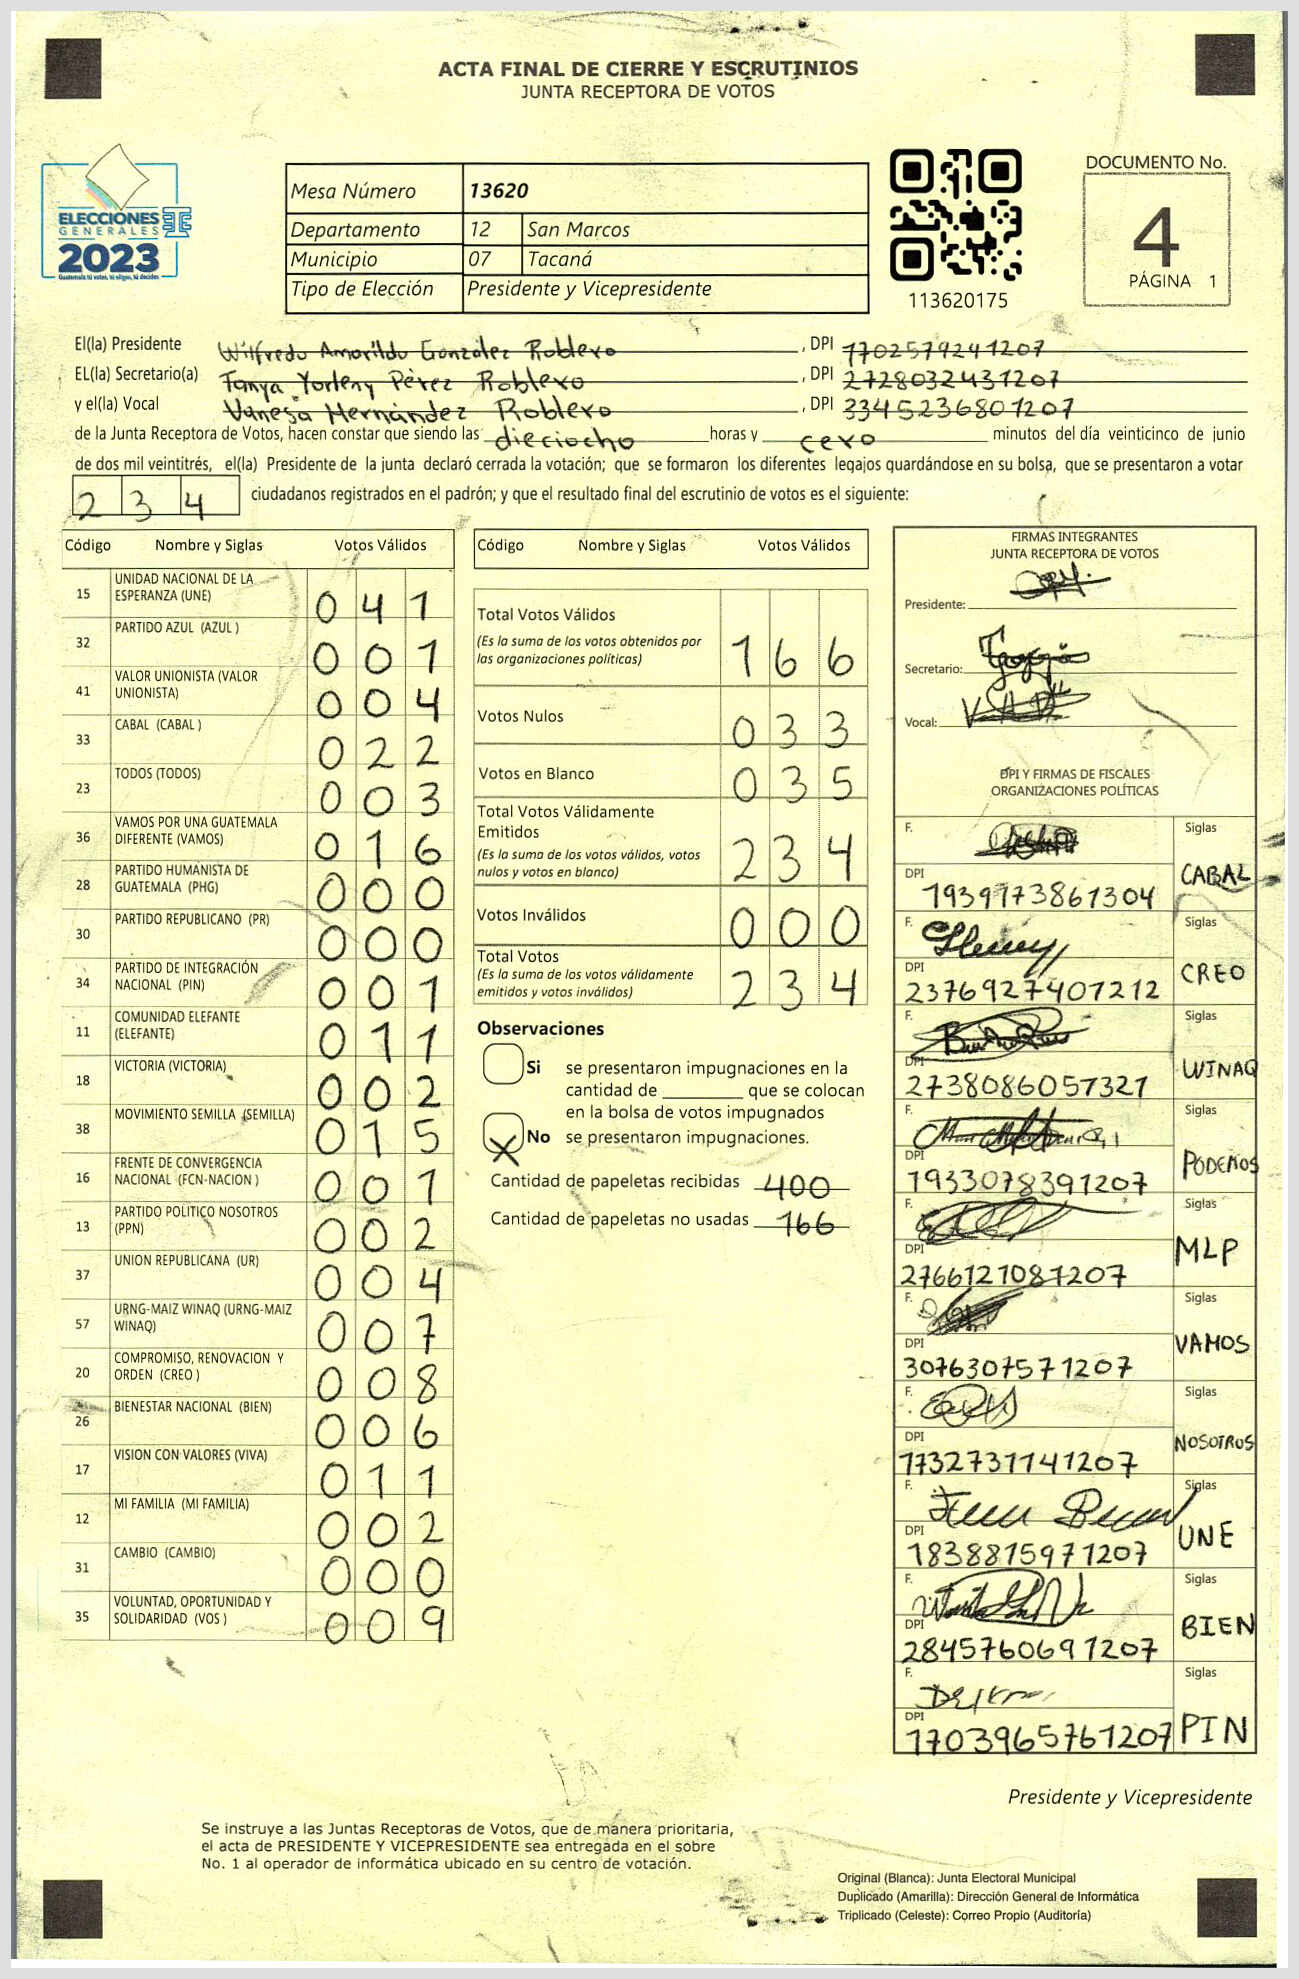 ACTA FINAL DE CIERRE Y ESCRUTINIOS
JUNTA RECEPTORA DE VOTOS
ELECCIONES
GENERALES
2023
Mesa Número 13620
Departamento 12 San Marcos
Municipio 07 Tacaná
Tipo de Elección Presidente y Vicepresidente
113620175
DOCUMENTO No.
4
PÁGINA 1
El(la) Presidente Wilfredo Amarildo González Roblero, DPI 1702579241207
EL(la) Secretario(a) Tanya Yorleny Pérez Roblero, DPI 2728032431207
y el(la) Vocal Vanesa Hernández Roblero, DPI 3345236801207
de la Junta Receptora de Votos, hacen constar que siendo las dieciocho horas y cero minutos del día veinticinco de junio
de dos mil veintitrés, el(la) Presidente de la junta declaró cerrada la votación; que se formaron los diferentes legajos guardándose en su bolsa, que se presentaron a votar
234 ciudadanos registrados en el padrón; y que el resultado final del escrutinio de votos es el siguiente:
Código Nombre y Siglas Votos Válidos
15 UNIDAD NACIONAL DE LA
ESPERANZA (UNE) 041
32 PARTIDO AZUL (AZUL ) 001
41 VALOR UNIONISTA (VALOR
UNIONISTA) 004
33 CABAL (CABAL ) 022
23 TODOS (TODOS) 003
36 VAMOS POR UNA GUATEMALA
DIFERENTE (VAMOS) 016
28 PARTIDO HUMANISTA DE
GUATEMALA (PHG) 000
30 PARTIDO REPUBLICANO (PR) 000
34 PARTIDO DE INTEGRACIÓN
NACIONAL (PIN) 001
11 COMUNIDAD ELEFANTE
(ELEFANTE) 011
18 VICTORIA (VICTORIA) 002
38 MOVIMIENTO SEMILLA (SEMILLA) 015
16 FRENTE DE CONVERGENCIA
NACIONAL (FCN-NACION ) 001
13 PARTIDO POLITICO NOSOTROS
(PPN) 002
37 UNION REPUBLICANA (UR) 004
57 URNG-MAIZ WINAQ (URNG-MAIZ
WINAQ) 007
20 COMPROMISO, RENOVACION Y
ORDEN (CREO ) 008
26 BIENESTAR NACIONAL (BIEN) 006
17 VISION CON VALORES (VIVA) 011
12 MI FAMILIA (MI FAMILIA) 002
31 CAMBIO (CAMBIO) 000
35 VOLUNTAD, OPORTUNIDAD Y
SOLIDARIDAD (VOS ) 009
Código Nombre y Siglas Votos Válidos
Total Votos Válidos
(Es la suma de los votos obtenidos por
las organizaciones políticas) 166
Votos Nulos 033
Votos en Blanco 035
Total Votos Válidamente
Emitidos
(Es la suma de los votos válidos, votos
nulos y votos en blanco) 234
Votos Inválidos 000
Total Votos
(Es la suma de los votos válidamente
emitidos y votos inválidos) 234
Observaciones
Si se presentaron impugnaciones en la
cantidad de ________ que se colocan
en la bolsa de votos impugnados
X No se presentaron impugnaciones.
Cantidad de papeletas recibidas 400
Cantidad de papeletas no usadas 166
FIRMAS INTEGRANTES
JUNTA RECEPTORA DE VOTOS
Presidente:
Secretario:
Vocal:
DPI Y FIRMAS DE FISCALES
ORGANIZACIONES POLÍTICAS
F. Siglas
DPI 1939173861304 CABAL
F. Siglas
DPI 2376927401212 CREO
F. Siglas
DPI 2738086057321 WINAQ
F. Siglas
DPI 1933078391207 PODEMOS
F. Siglas
DPI 2766121081207 MLP
F. Siglas
DPI 3076307571207 VAMOS
F. Siglas
DPI 1732731141207 NOSOTROS
F. Siglas
DPI 1838815971207 UNE
F. Siglas
DPI 2845760691207 BIEN
F. Siglas
DPI 1703965761207 PIN
Presidente y Vicepresidente
Se instruye a las Juntas Receptoras de Votos, que de manera prioritaria,
el acta de PRESIDENTE Y VICEPRESIDENTE sea entregada en el sobre
No. 1 al operador de informática ubicado en su centro de votación.
Original (Blanca): Junta Electoral Municipal
Duplicado (Amarilla): Dirección General de Informática
Triplicado (Celeste): Correo Propio (Auditoría)